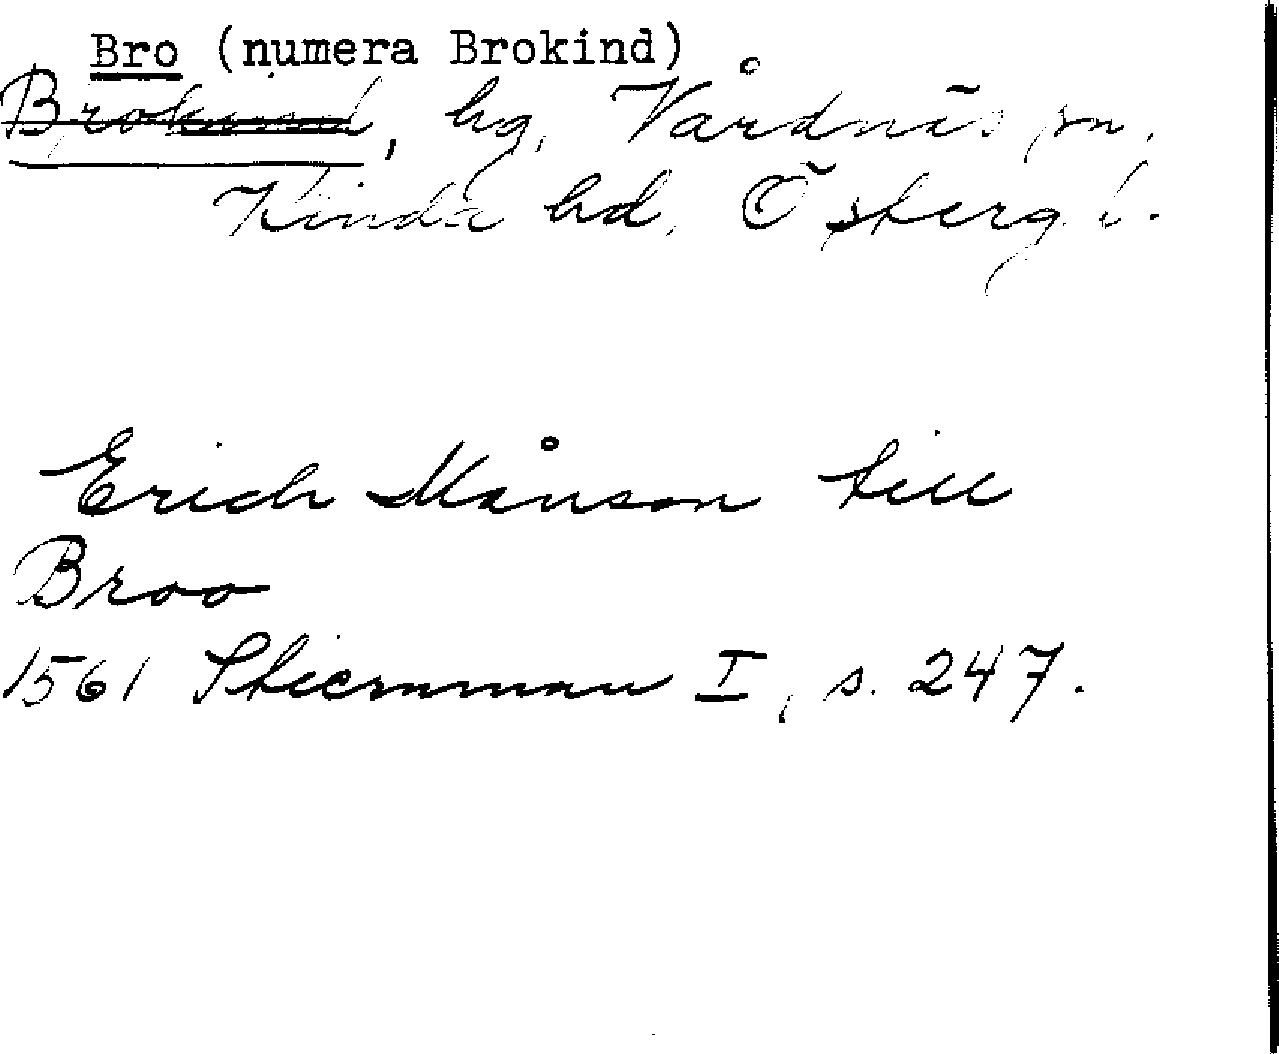 Bro (numera Brokind)
Brokind, hg, Vårdnäs sn,
Kinda hd, Östergl.
Erich Månson till
Broo
1561 Stiernman I, s. 247.